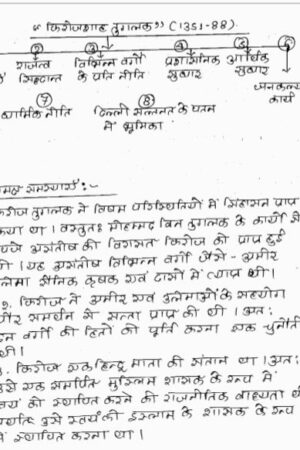 "फिरोजशाह तुगलक" (1351-88)
② ③ ④ ⑤ ⑥
राजत्व विभिन्न वर्गों प्रशासनिक आर्थिक
सिद्धान्त के प्रति नीति सुधार सुधार
जनकल्य
कार्य
⑦ ⑧
धार्मिक नीति दिल्ली सल्तनत के पतन
में भूमिका
समस्यायें :-
फिरोज तुगलक ने विषम परिस्थितियों में सिंहासन प्राप्
किया था । वस्तुतः मोहम्मद बिन तुगलक के कार्यों से
असंतोष की विरासत फिरोज को प्राप्त हुई
थी । यह असंतोष विभिन्न वर्गों जैसे - अमीर
उलेमा सैनिक कृषक एवं दासों में व्याप्त थी ।
2. फिरोज ने अमीर एवं उलेमाओं के सहयोग
और समर्थन से सत्ता प्राप्त की थी । अतः
इन वर्गों की हितों की पूर्ति करना एक चुनौती
थी ।
3. फिरोज एक हिन्दू माता की संतान था । अतः
उसे एक समर्पित मुस्लिम शासक के रूप में
स्वयं को स्थापित करने की राजनीतिक बाध्यता थ
अर्थात् उसे स्वयं को इस्लाम के शासक के रूप
में स्थापित करना था ।